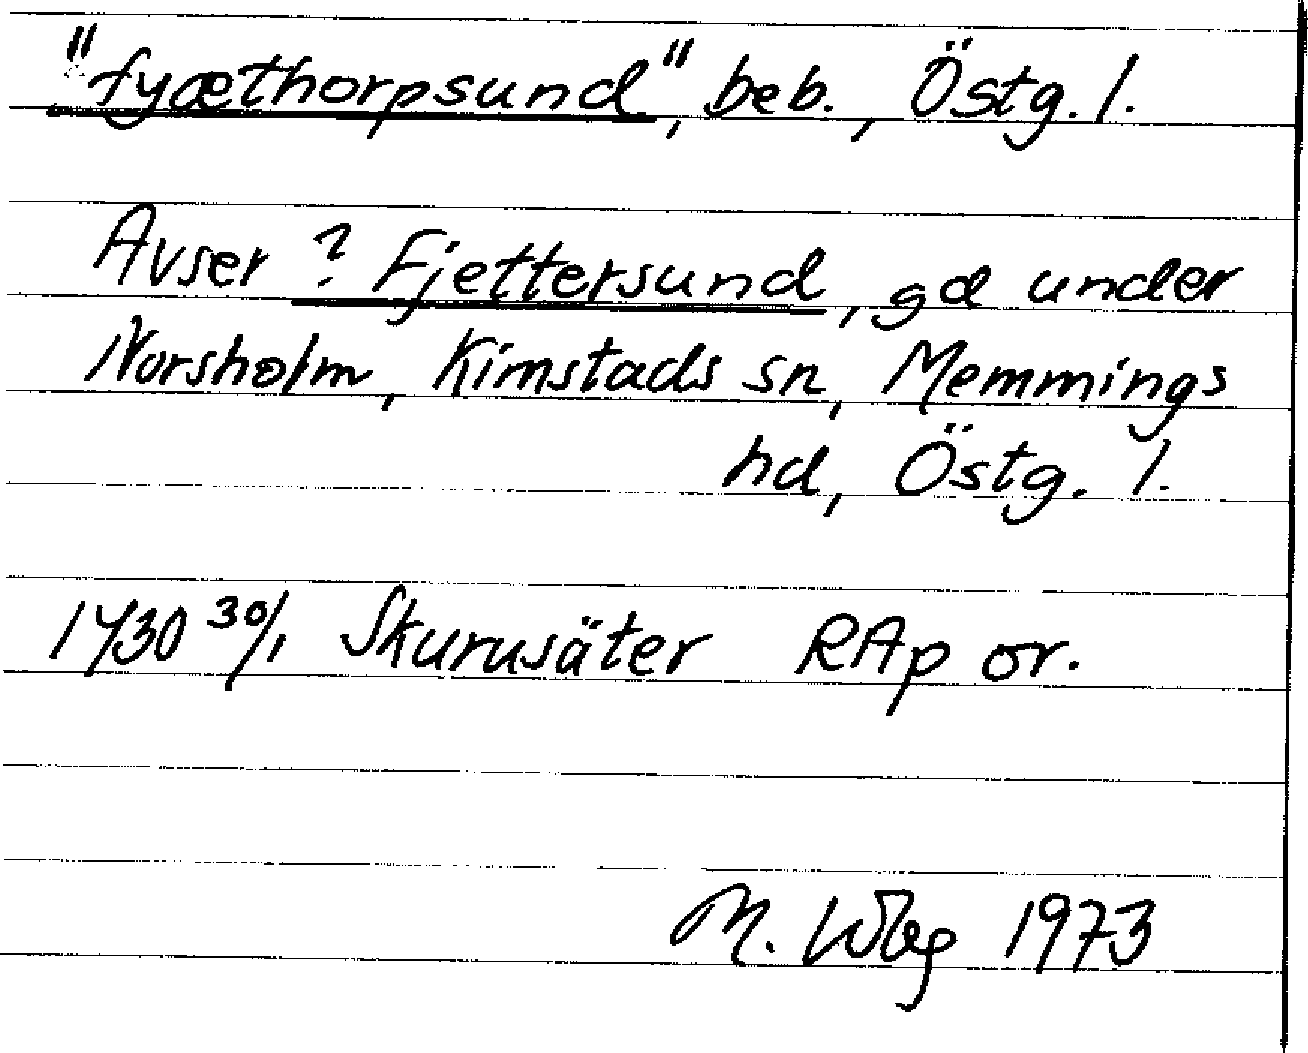 "fyæthorpsund", beb., Östg. l.
Avser ? Fjettersund, gd under
Norsholm, Kimstads sn, Memmings
hd, Östg. l.
1430 30/1 Skurusäter RAp or.
M. 1973